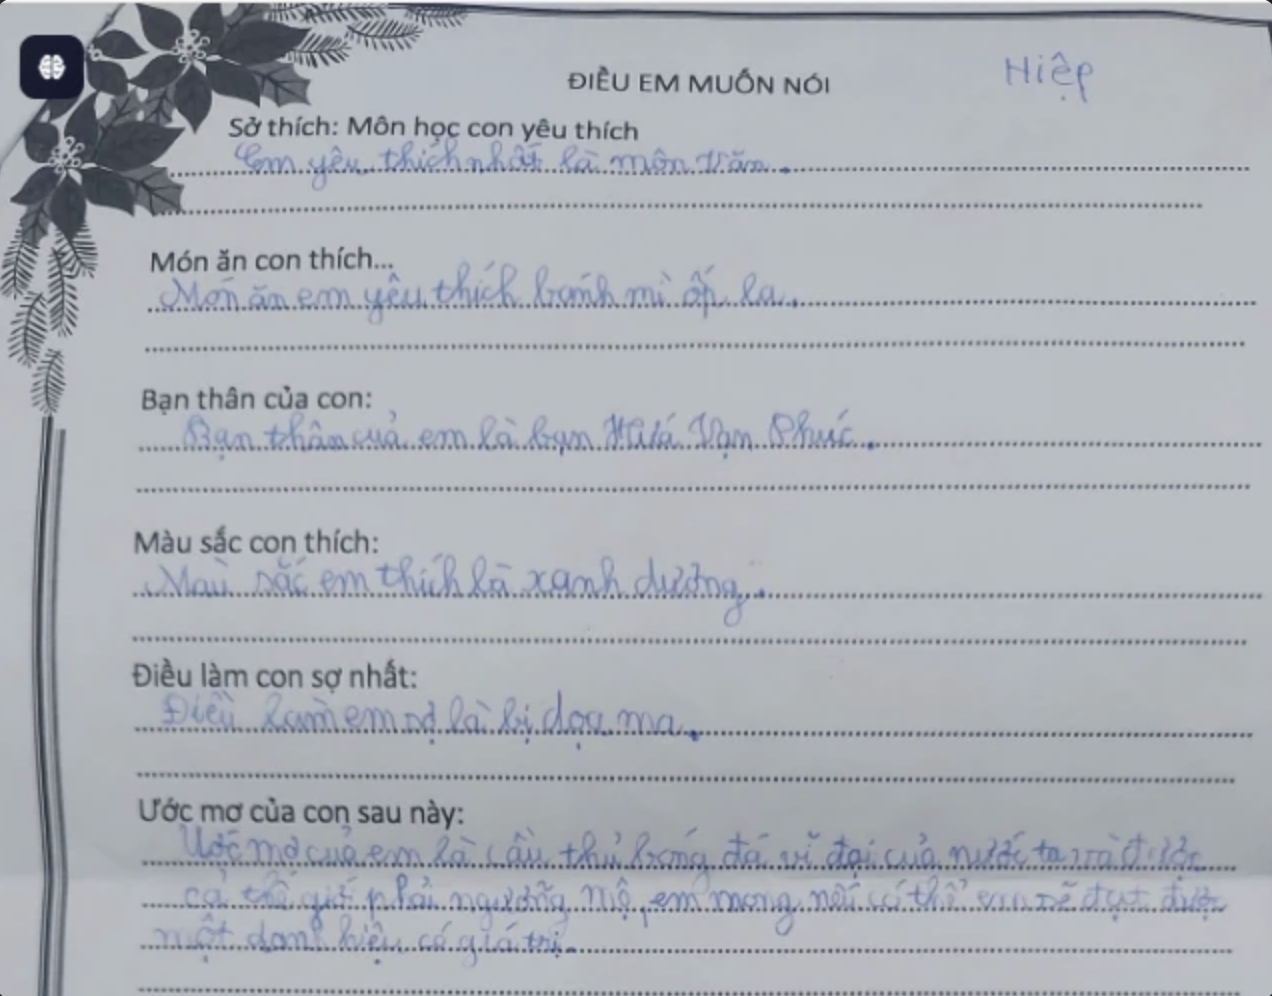 Hiệp
ĐIỀU EM MUỐN NÓI
Sở thích: Môn học con yêu thích
Em yêu thích nhất là môn Văn.
Món ăn con thích...
Món ăn em yêu thích bánh mì ốp la.
Bạn thân của con:
Bạn thân của em là bạn Hứa Vạn Phúc.
Màu sắc con thích:
Màu sắc em thích là xanh dương.
Điều làm con sợ nhất:
Điều làm em sợ là bị dọa ma.
Ước mơ của con sau này:
Ước mơ của em là cầu thủ bóng đá vĩ đại của nước ta và được
cả thế giới phải ngưỡng mộ, em mong nếu có thể em sẽ đạt được
một danh hiệu có giá trị.